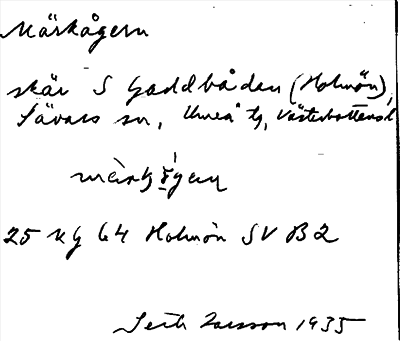 Märkågern
skär S Gaddbåden (Holmön),
Sävars sn, Umeå tg, Västerbottens l
25 Kg 64 Holmön SV B2
Larsson 1935